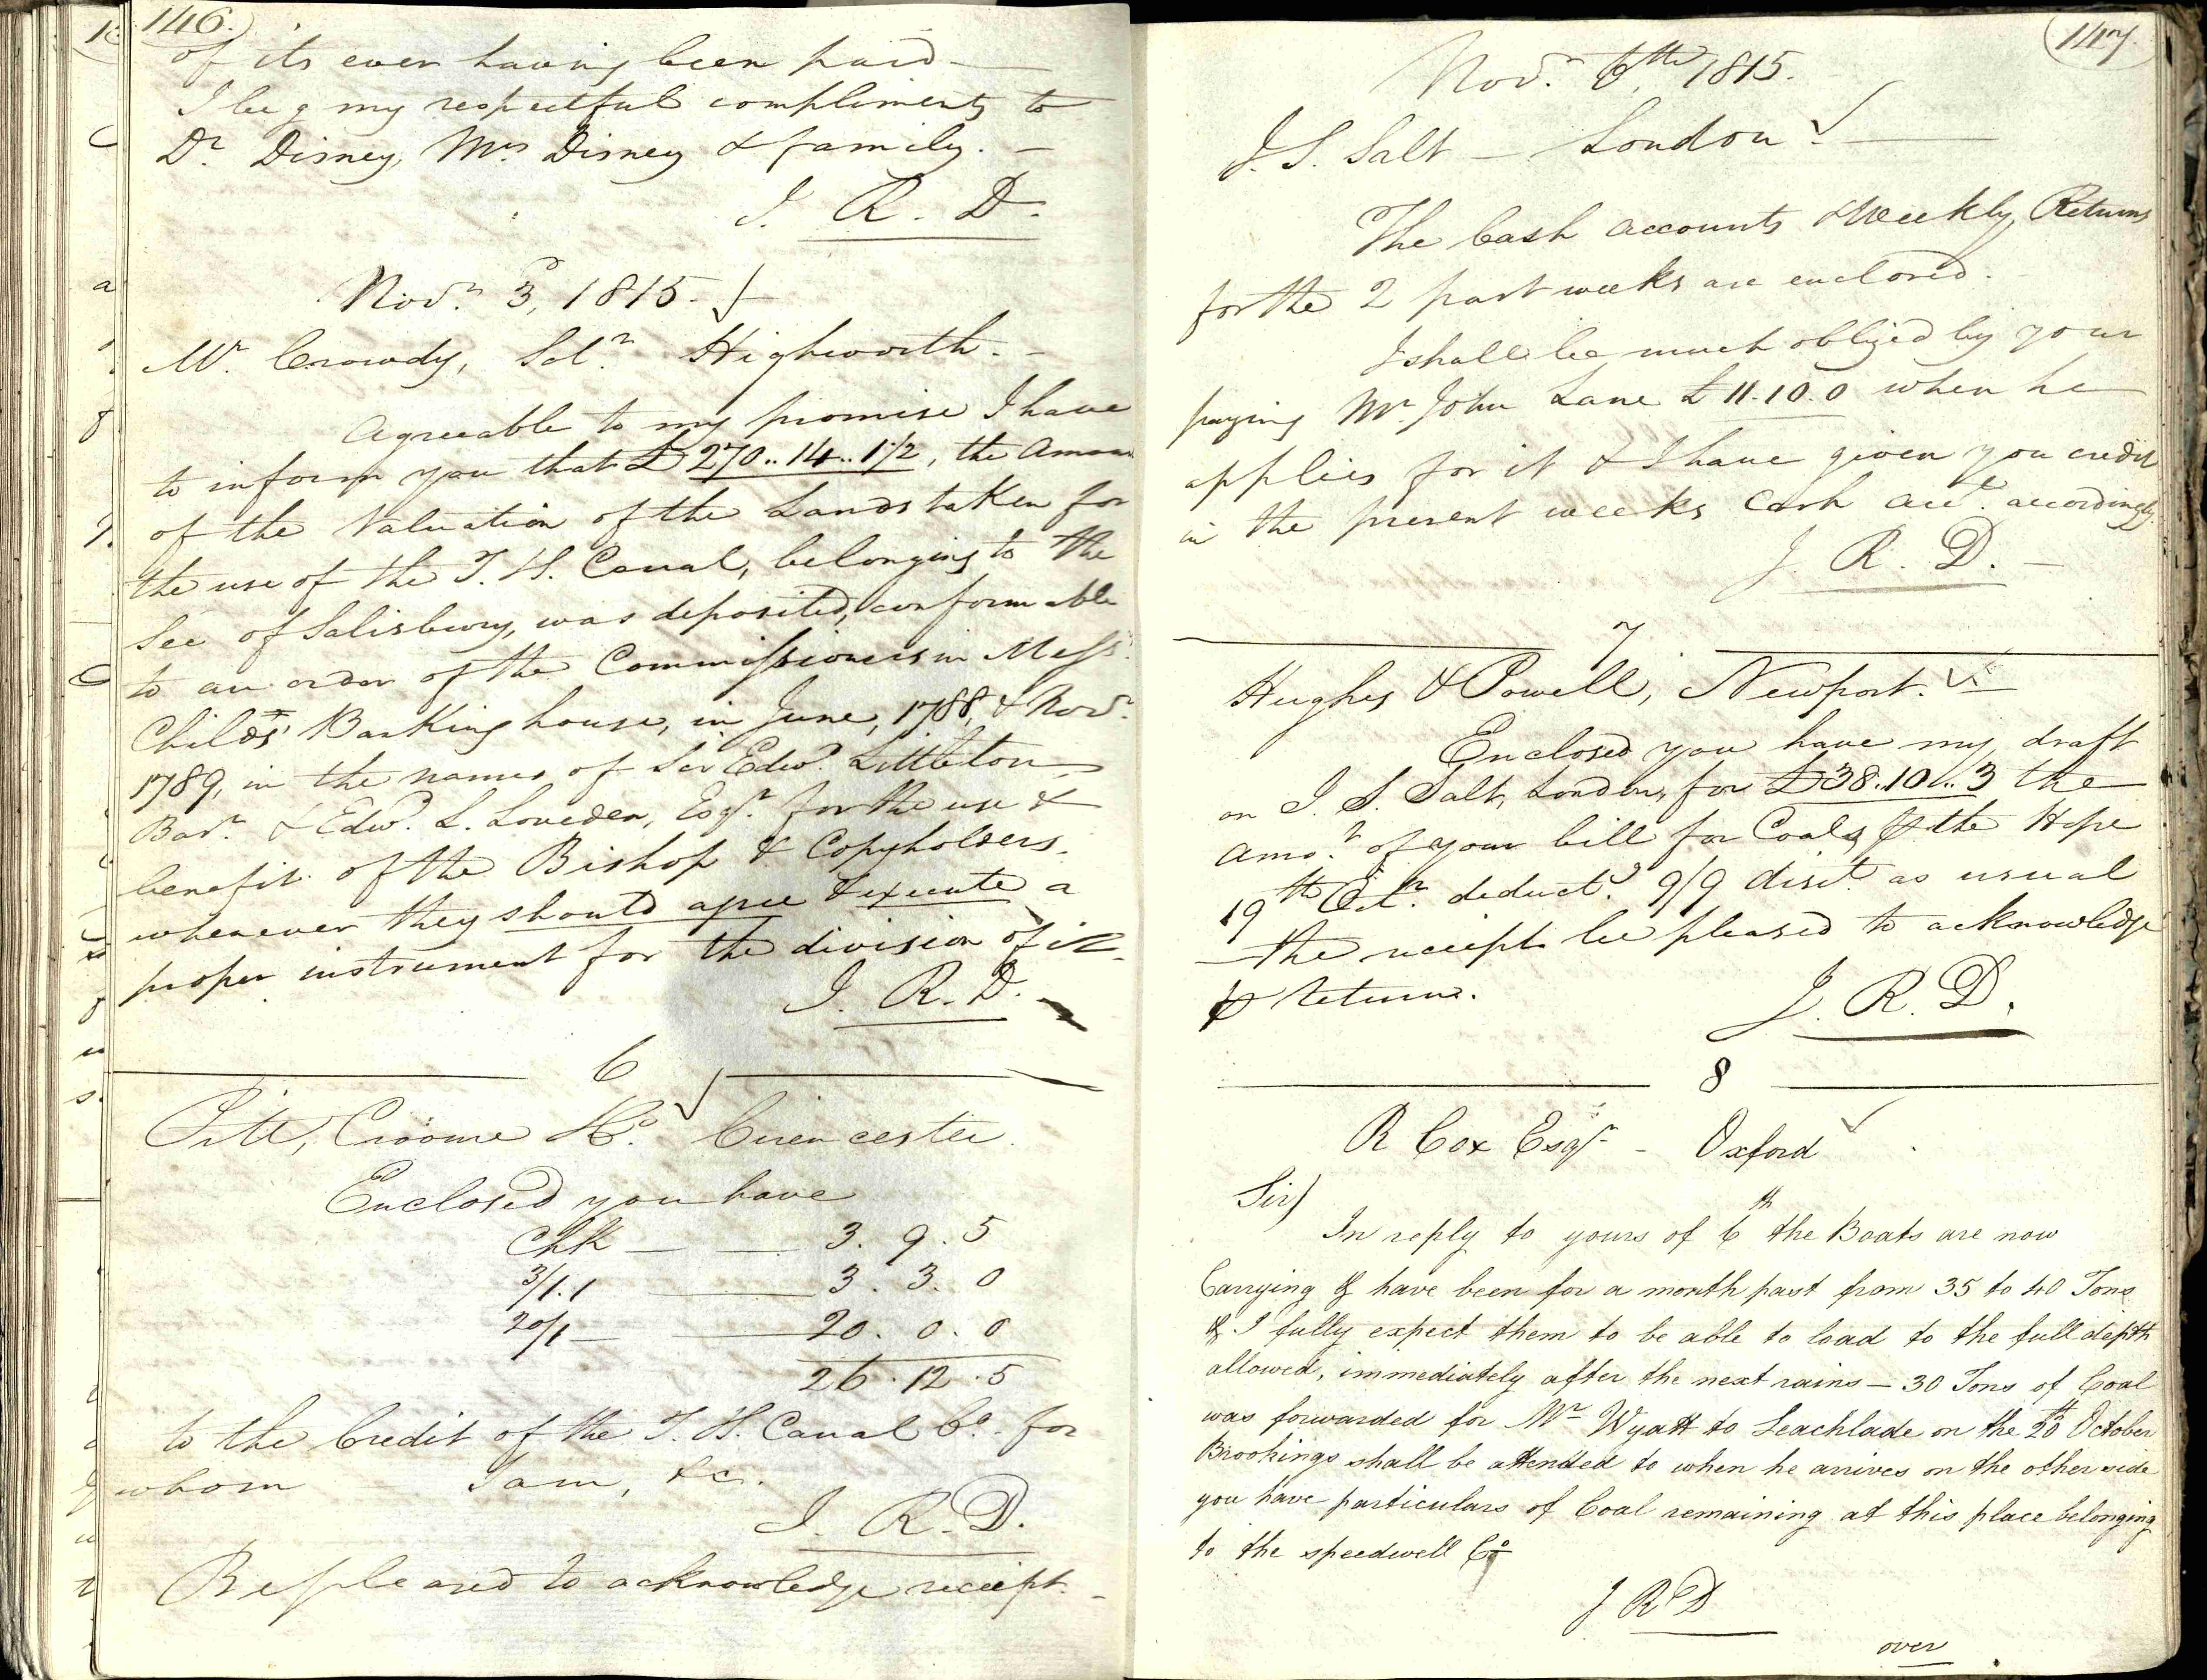 146.
of its ever having been paid —
I beg my respectful compliments to
Dr. Disney, Mrs Disney & family. —
J. R. D.
Novr. 3d, 1815.
Mr. Crowdy, Solr. Highworth. —
Agreeable to my promise I have
to inform you that £270..14..1½, the Amou
of the Valuation of the Lands taken for
the use of the T. S. Canal, belonging to the
See of Salisbury, was deposited, conformable
to an order of the Commissioners in Messrs.
Child's Banking house, in June, 1788, & Novr.
1789, in the names of Sir Edwd. Littleton
Bart. & Edwd. L. Loveden, Esqr. for the use &
benefit of the Bishop & Copyholders.
whenever they should agree & execute a
proper instrument for the division of it.
J. R. D.
6
Pitt, Croome & Co. Cirencester.
Enclosed you have
Chk — — 3. 9. 5
3/1.1 — 3. 3. 0
20/1 — 20. 0. 0
26. 12. 5
to the Credit of the T. S. Canal Co. for
whom I am, &c.
J. R. D.
Be pleased to acknowledge receipt. —
147.
Novr. 6th, 1815.
J. S. Salt — London. —
The Cash accounts & Weekly Returns
for the 2 past weeks are enclosed.
I shall be much obliged by your
paying Mr. John Lane £11.10.0 when he
applies for it & I have given you credit
in the present weeks Cash acct. accordingly.
J. R. D. —
7
Hughes & Powell, Newport.
Enclosed you have my draft
on J. S. Salt, London, for £38.10..3 the
amot. of your bill for Coals & the Hope
19th Octr. deductg. 9/9 disct. as usual
— the receipt be pleased to acknowledge
& return.
J. R. D.
8
R Cox Esqr. — Oxford
Sir)
In reply to yours of 6th the Boats are now
Carrying & have been for a month past from 35 to 40 Tons
& I fully expect them to be able to load to the full depth
allowed, immediately after the next rains — 30 Tons of Coal
was forwarded for Mr. Wyatt to Leachlade on the 20th October
Brookings shall be attended to when he arrives on the other side
you have particulars of Coal remaining at this place belonging
to the speedwell Co
J R D
over